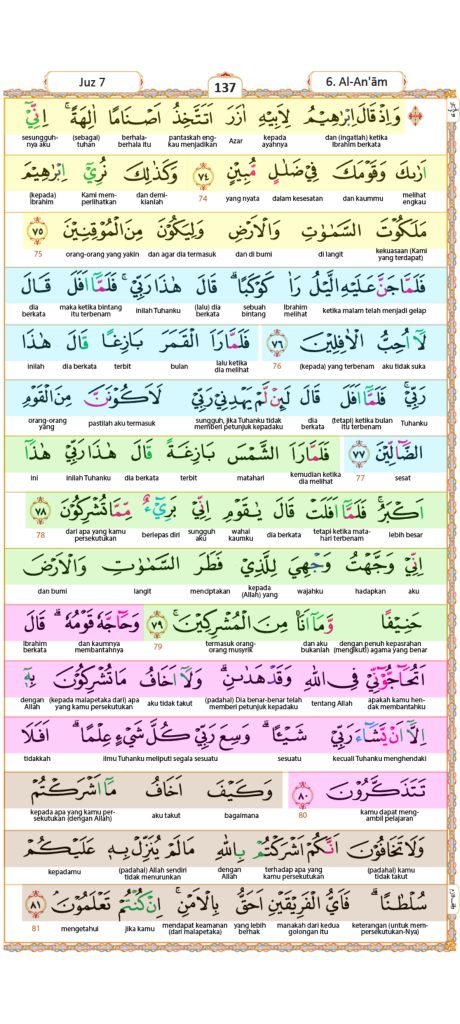 Juz 7
137
6. Al-An'ām
وَاِذْ قَالَ اِبْرٰهِيْمُ لِاَبِيْهِ اٰزَرَ اَتَتَّخِذُ اَصْنَامًا اٰلِهَةً ۚ اِنِّيْٓ
dan (ingatlah) ketika Ibrahim berkata kepada ayahnya Azar pantaskah engkau menjadikan berhala-berhala itu (sebagai) tuhan sesungguhnya aku
اَرٰىكَ وَقَوْمَكَ فِيْ ضَلٰلٍ مُّبِيْنٍ ﴿٧٤﴾ وَكَذٰلِكَ نُرِيْٓ اِبْرٰهِيْمَ
melihat engkau dan kaummu dalam kesesatan yang nyata 74 dan demikianlah Kami memperlihatkan (kepada) Ibrahim
مَلَكُوْتَ السَّمٰوٰتِ وَالْاَرْضِ وَلِيَكُوْنَ مِنَ الْمُوْقِنِيْنَ ﴿٧٥﴾
kekuasaan (Kami yang terdapat) di langit dan di bumi dan agar dia termasuk orang-orang yang yakin 75
فَلَمَّا جَنَّ عَلَيْهِ الَّيْلُ رَاٰ كَوْكَبًا ۗ قَالَ هٰذَا رَبِّيْ ۚ فَلَمَّآ اَفَلَ قَالَ
ketika malam telah menjadi gelap Ibrahim melihat sebuah bintang (lalu) dia berkata inilah Tuhanku maka ketika bintang itu terbenam dia berkata
لَآ اُحِبُّ الْاٰفِلِيْنَ ﴿٧٦﴾ فَلَمَّا رَاَ الْقَمَرَ بَازِغًا قَالَ هٰذَا
aku tidak suka (kepada) yang terbenam 76 lalu ketika dia melihat bulan terbit dia berkata inilah
رَبِّيْ ۚ فَلَمَّآ اَفَلَ قَالَ لَىِٕنْ لَّمْ يَهْدِنِيْ رَبِّيْ لَاَكُوْنَنَّ مِنَ الْقَوْمِ
Tuhanku (tetapi) ketika bulan itu terbenam dia berkata sungguh, jika Tuhanku tidak memberi petunjuk kepadaku pastilah aku termasuk orang-orang yang
الضَّاۤلِّيْنَ ﴿٧٧﴾ فَلَمَّا رَاَ الشَّمْسَ بَازِغَةً قَالَ هٰذَا رَبِّيْ هٰذَآ
sesat 77 kemudian ketika dia melihat matahari terbit dia berkata inilah Tuhanku ini
اَكْبَرُ ۚ فَلَمَّآ اَفَلَتْ قَالَ يٰقَوْمِ اِنِّيْ بَرِيْۤءٌ مِّمَّا تُشْرِكُوْنَ ﴿٧٨﴾
lebih besar tetapi ketika matahari terbenam dia berkata wahai kaumku sungguh aku berlepas diri dari apa yang kamu persekutukan 78
اِنِّيْ وَجَّهْتُ وَجْهِيَ لِلَّذِيْ فَطَرَ السَّمٰوٰتِ وَالْاَرْضَ
aku hadapkan wajahku kepada (Allah) yang menciptakan langit dan bumi
حَنِيْفًا وَّمَآ اَنَا۠ مِنَ الْمُشْرِكِيْنَ ۚ ﴿٧٩﴾ وَحَاۤجَّهٗ قَوْمُهٗ ۗ قَالَ
dengan penuh kepasrahan (mengikuti) agama yang benar dan aku bukanlah termasuk orang-orang musyrik 79 dan kaumnya membantahnya Ibrahim berkata
اَتُحَاۤجُّوْۤنِّيْ فِى اللّٰهِ وَقَدْ هَدٰىنِ ۗ وَلَآ اَخَافُ مَا تُشْرِكُوْنَ بِهٖٓ
apakah kamu hendak membantahku tentang Allah (padahal) Dia benar-benar telah memberi petunjuk kepadaku aku tidak takut (kepada malapetaka dari) apa yang kamu persekutukan dengan Allah
اِلَّآ اَنْ يَّشَاۤءَ رَبِّيْ شَيْـًٔا ۗ وَسِعَ رَبِّيْ كُلَّ شَيْءٍ عِلْمًا ۗ اَفَلَا
kecuali Tuhanku menghendaki sesuatu ilmu Tuhanku meliputi segala sesuatu tidakkah
تَتَذَكَّرُوْنَ ﴿٨٠﴾ وَكَيْفَ اَخَافُ مَآ اَشْرَكْتُمْ
kamu dapat mengambil pelajaran 80 bagaimana aku takut kepada apa yang kamu persekutukan (dengan Allah)
وَلَا تَخَافُوْنَ اَنَّكُمْ اَشْرَكْتُمْ بِاللّٰهِ مَا لَمْ يُنَزِّلْ بِهٖ عَلَيْكُمْ
(padahal) kamu tidak takut terhadap apa yang kamu persekutukan dengan Allah (padahal) Allah sendiri tidak menurunkan kepadamu
سُلْطٰنًا ۗ فَاَيُّ الْفَرِيْقَيْنِ اَحَقُّ بِالْاَمْنِ ۚ اِنْ كُنْتُمْ تَعْلَمُوْنَ ۘ ﴿٨١﴾
keterangan (untuk mempersekutukan-Nya) manakah dari kedua golongan itu yang lebih berhak mendapat keamanan (dari malapetaka) jika kamu mengetahui 81